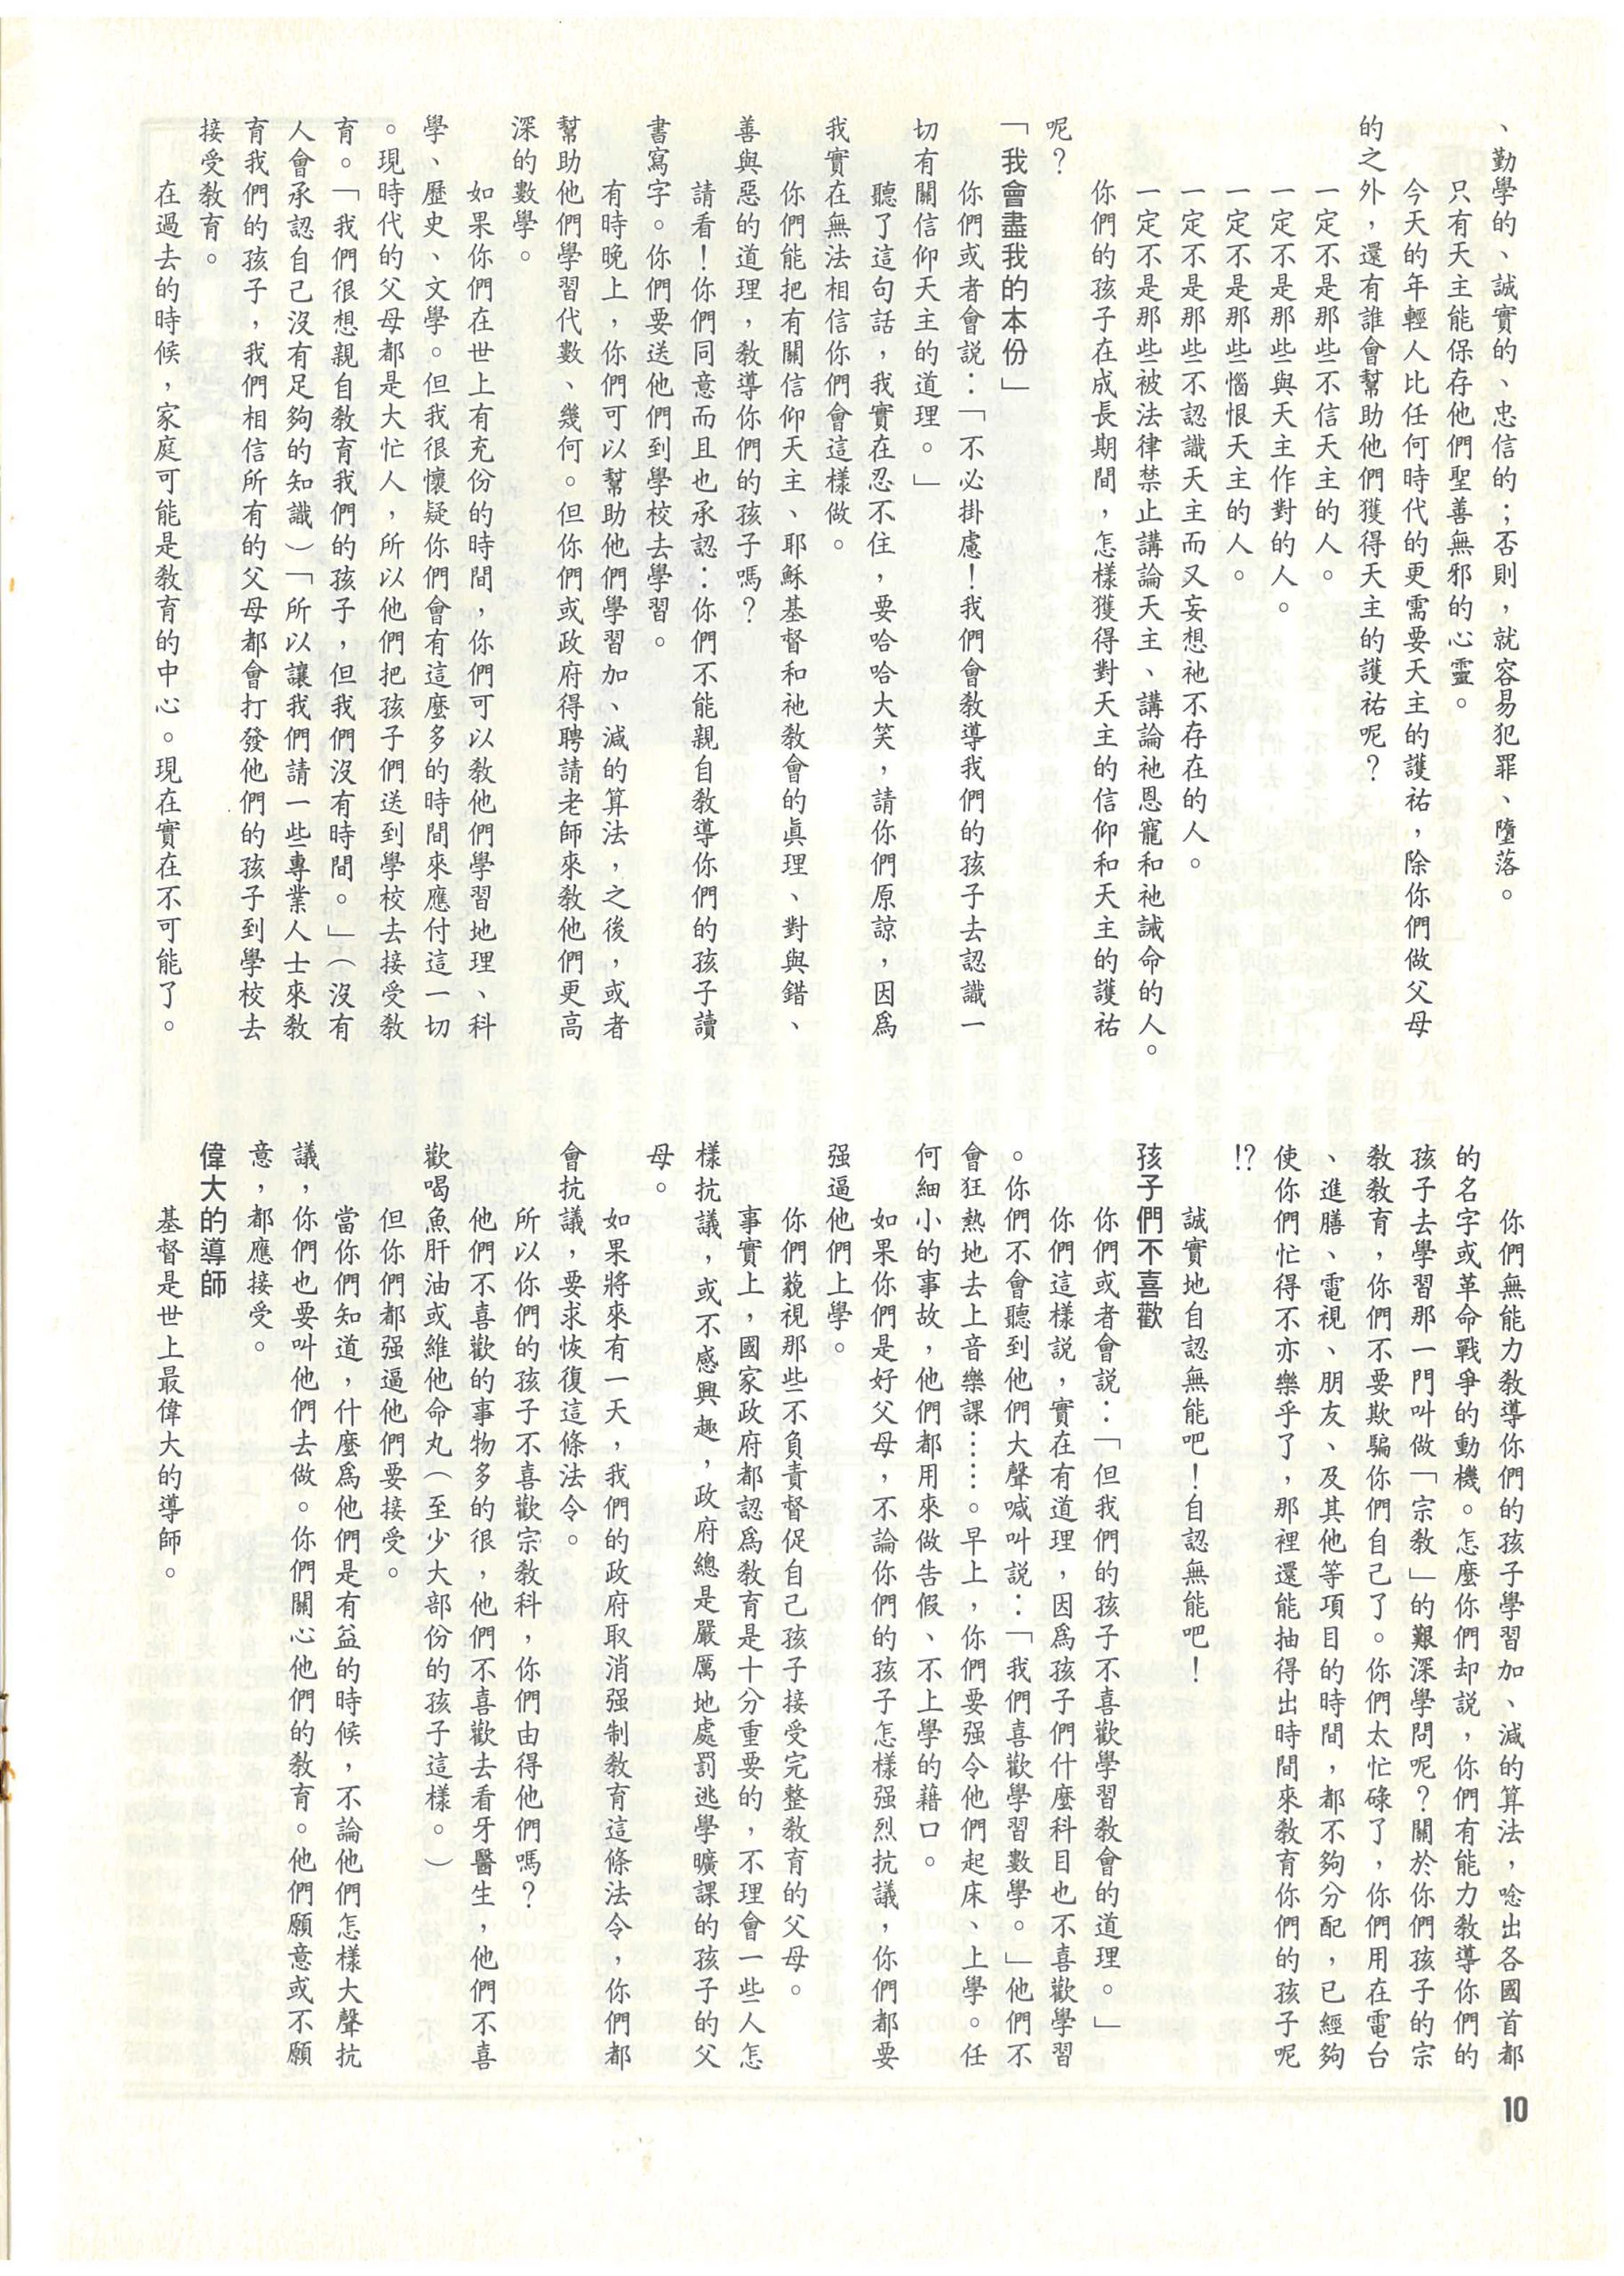 、勤學的、誠實的、忠信的；否則，就容易犯罪、墮落。
只有天主能保存他們聖善無邪的心靈。
今天的年輕人比任何時代的更需要天主的護祐，除你們做父母
的之外，還有誰會幫助他們獲得天主的護祐呢？
一定不是那些不信天主的人。
一定不是那些與天主作對的人。
一定不是那些惱恨天主的人。
一定不是那些不認識天主而又妄想祂不存在的人。
一定不是那些被法律禁止講論天主、講論祂恩寵和祂誡命的人。
你們的孩子在成長期間，怎樣獲得對天主的信仰和天主的護祐
呢？
「我會盡我的本份」
你們或者會説：「不必掛慮！我們會教導我們的孩子去認識一
切有關信仰天主的道理。」
聽了這句話，我實在忍不住，要哈哈大笑，請你們原諒，因爲
我實在無法相信你們會這樣做。
你們能把有關信仰天主、耶穌基督和祂教會的眞理、對與錯、
善與惡的道理，教導你們的孩子嗎？
請看！你們同意而且也承認：你們不能親自教導你們的孩子讀
書寫字。你們要送他們到學校去學習。
有時晚上，你們可以幫助他們學習加、減的算法，之後，或者
幫助他們學習代數、幾何。但你們或政府得聘請老師來教他們更高
深的數學。
如果你們在世上有充份的時間，你們可以教他們學習地理、科
學、歷史、文學。但我很懷疑你們會有這麼多的時間來應付這一切
。現時代的父母都是大忙人，所以他們把孩子們送到學校去接受教
育。「我們很想親自教育我們的孩子，但我們沒有時間。」（沒有
人會承認自己沒有足夠的知識）「所以讓我們請一些專業人士來教
育我們的孩子，我們相信所有的父母都會打發他們的孩子到學校去
接受教育。
在過去的時候，家庭可能是教育的中心。現在實在不可能了。
你們無能力教導你們的孩子學習加、減的算法，唸出各國首都
的名字或革命戰爭的動機。怎麼你們却説，你們有能力教導你們的
孩子去學習那一門叫做「宗教」的艱深學問呢？關於你們孩子的宗
教教育，你們不要欺騙你們自己了。你們太忙碌了，你們用在電台
、進膳、電視、朋友、及其他等項目的時間，都不夠分配，已經夠
使你們忙得不亦樂乎了，那裡還能抽得出時間來教育你們的孩子呢
!?
誠實地自認無能吧！自認無能吧！
孩子們不喜歡
你們或者會説：「但我們的孩子不喜歡學習教會的道理。」
你們這樣説，實在有道理，因爲孩子們什麼科目也不喜歡學習
。你們不會聽到他們大聲喊叫説：「我們喜歡學習數學。」他們不
會狂熱地去上音樂課……。早上，你們要强令他們起床、上學。任
何細小的事故，他們都用來做告假、不上學的藉口。
如果你們是好父母，不論你們的孩子怎樣强烈抗議，你們都要
强逼他們上學。
你們藐視那些不負責督促自己孩子接受完整教育的父母。
事實上，國家政府都認爲教育是十分重要的，不理會一些人怎
樣抗議，或不感興趣，政府總是嚴厲地處罰逃學曠課的孩子的父
母。
如果將來有一天，我們的政府取消强制教育這條法令，你們都
會抗議，要求恢復這條法令。
所以你們的孩子不喜歡宗教科，你們由得他們嗎？
他們不喜歡的事物多的很，他們不喜歡去看牙醫生，他們不喜
歡喝魚肝油或維他命丸（至少大部份的孩子這樣。）
但你們都强逼他們要接受。
當你們知道，什麼爲他們是有益的時候，不論他們怎樣大聲抗
議，你們也要叫他們去做。你們關心他們的教育。他們願意或不願
意，都應接受。
偉大的導師
基督是世上最偉大的導師。
10